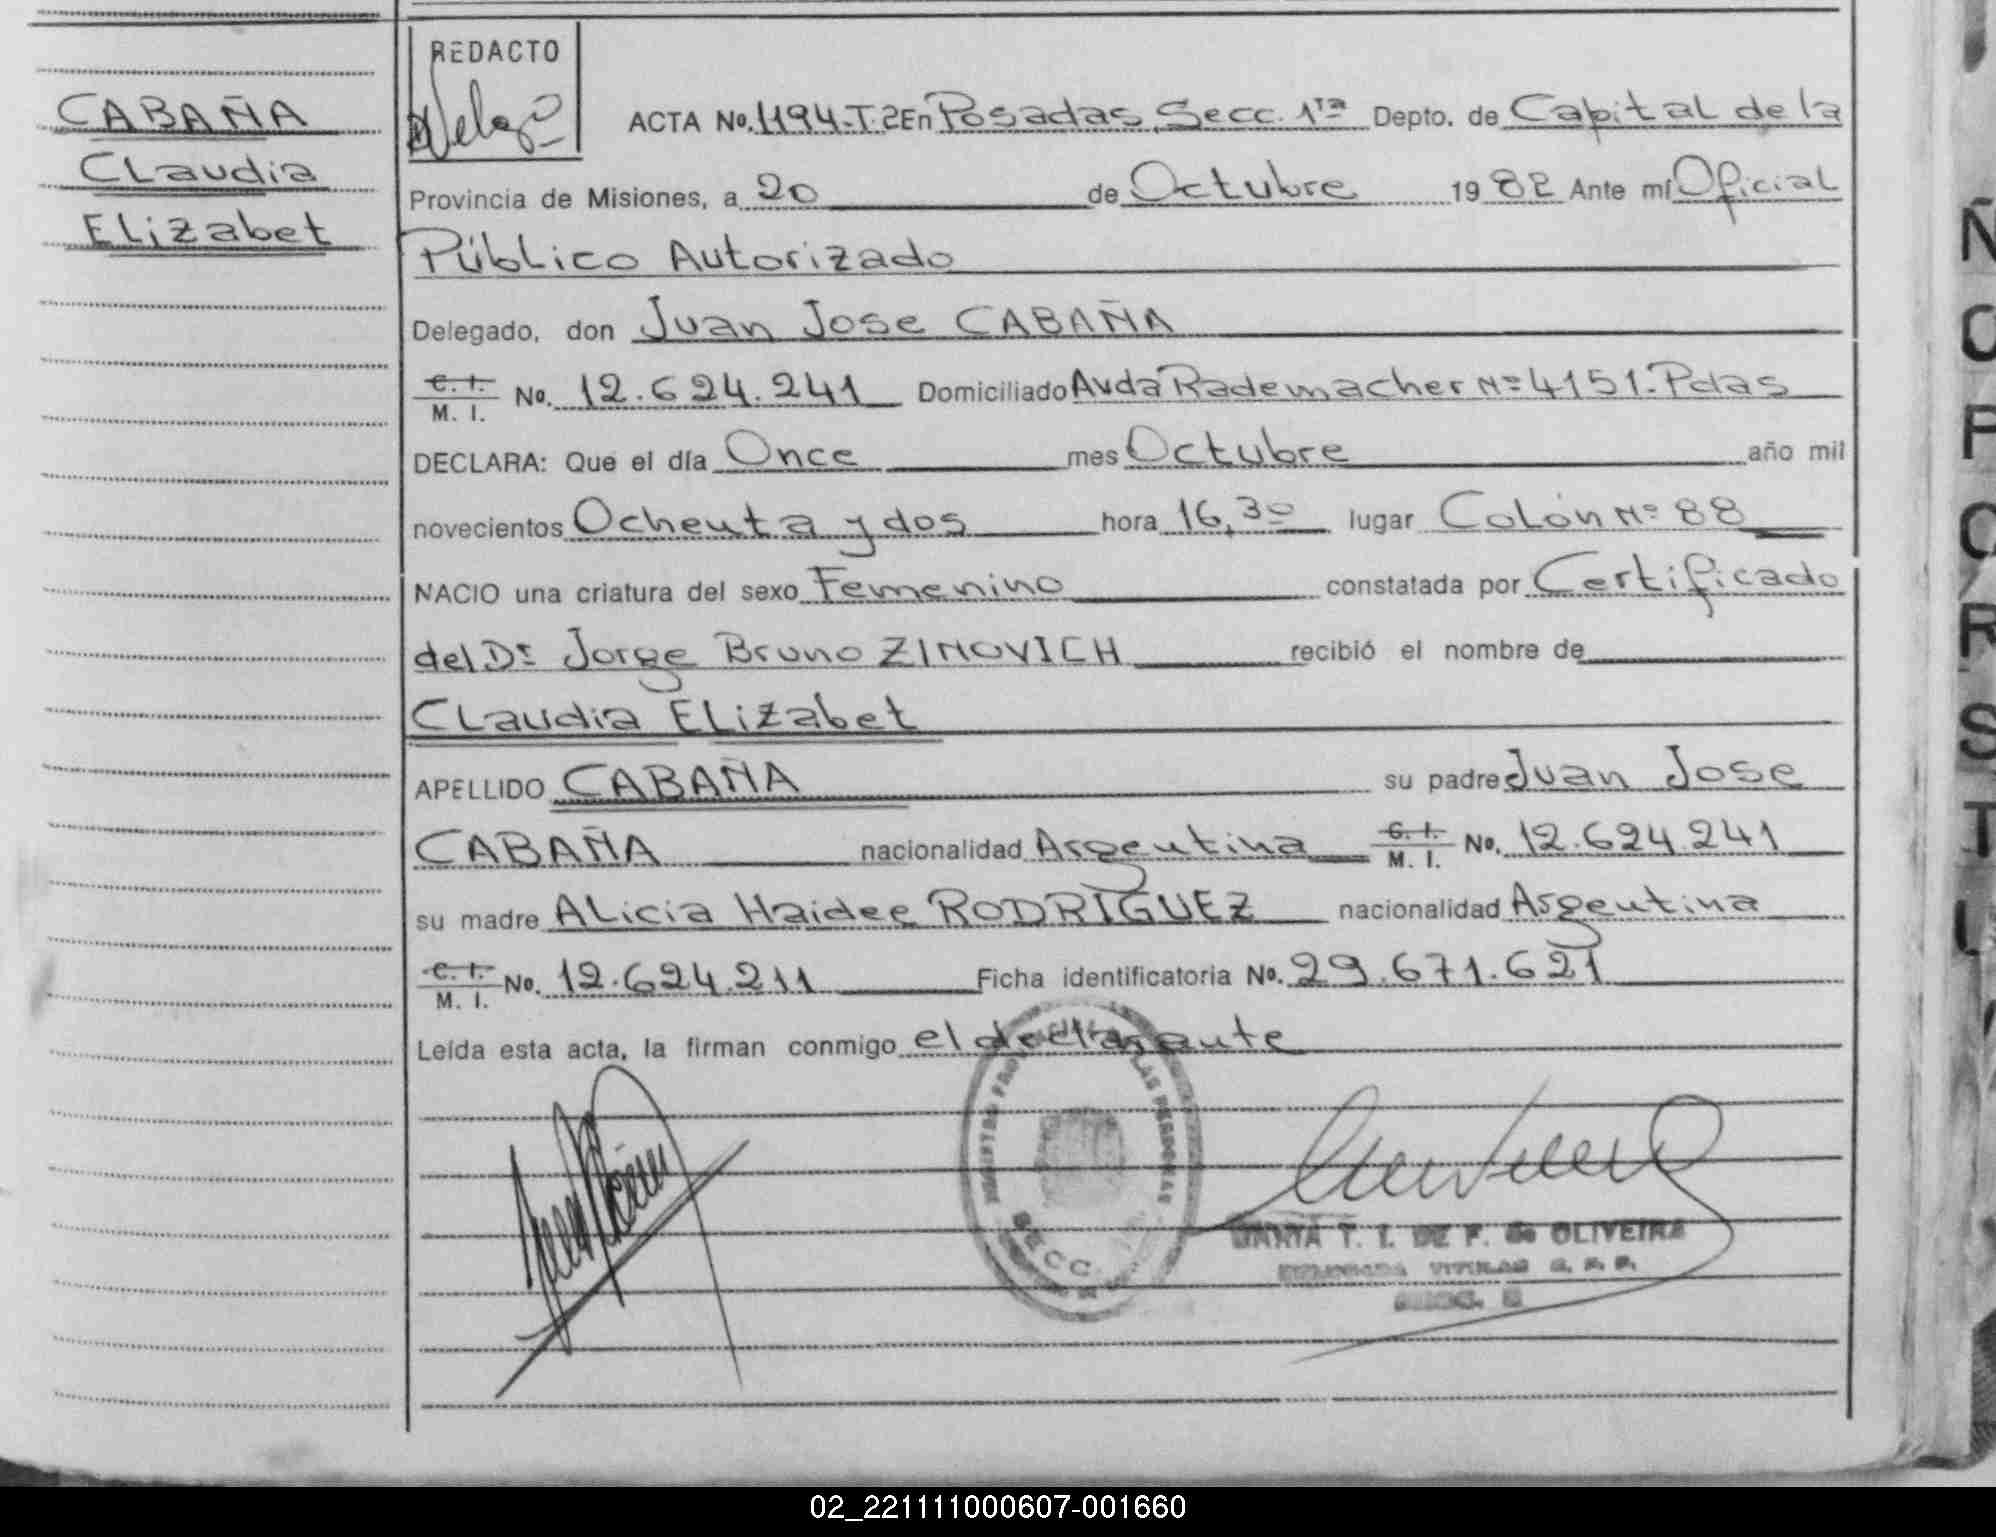 CABAÑA
Claudia
Elizabet
REDACTO
ACTA No. 1194-T.2 En Posadas, Secc. 1ra Depto. de Capital de la
Provincia de Misiones, a 20 de Octubre 1982 Ante mí Oficial
Público Autorizado
Delegado, don Juan Jose CABAÑA
C. I. M. I. No. 12.624.241 Domiciliado Avda Rademacher Nº 4151. Pdas
DECLARA: Que el día Once mes Octubre año mil
novecientos Ochenta y dos hora 16,30 lugar Colón Nº 88
NACIO una criatura del sexo Femenino constatada por Certificado
del Dr Jorge Bruno ZINOVICH recibió el nombre de
Claudia Elizabet
APELLIDO CABAÑA su padre Juan Jose
CABAÑA nacionalidad Argentina C. I. M. I. No. 12.624.241
su madre Alicia Haidee RODRIGUEZ nacionalidad Argentina
C. I. M. I. No. 12.624.211 Ficha identificatoria No. 29.671.621
Leída esta acta, la firman conmigo el declarante
SECC
T. I. DE F. de OLIVEIRA
Ñ
O
P
Q
R
S
T
02_221111000607-001660